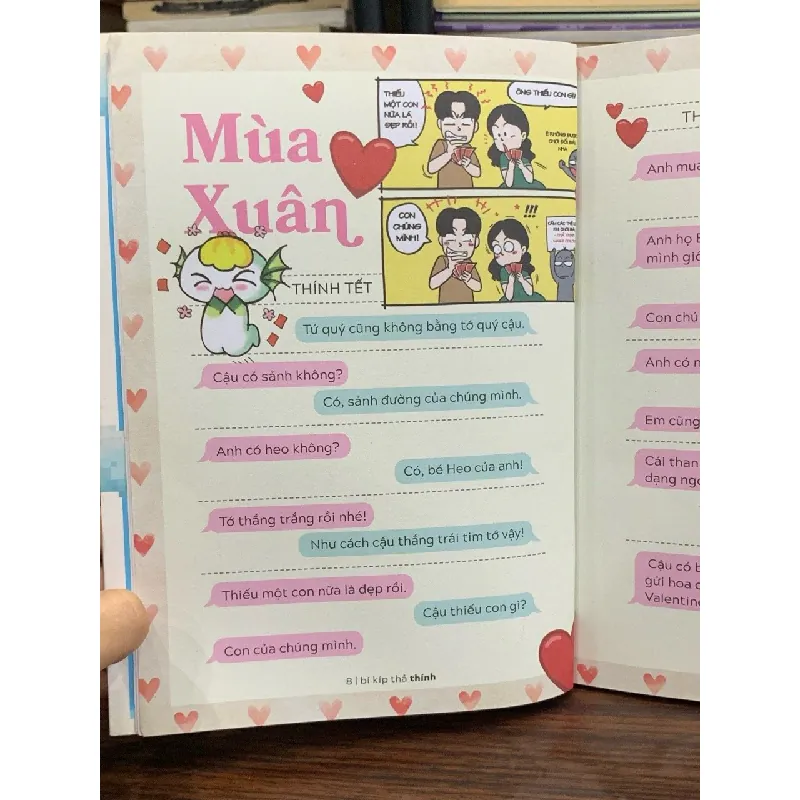 Mùa
Xuân
THÍNH TẾT
THIẾU
MỘT CON
NỮA LÀ
ĐẸP RỒI!
ÔNG THIẾU CON GÌ
CON
CHÚNG
MÌNH!
!!!
Tứ quý cũng không bằng tớ quý cậu.
Cậu có sảnh không?
Có, sảnh đường của chúng mình.
Anh có heo không?
Có, bé Heo của anh!
Tớ thắng trắng rồi nhé!
Như cách cậu thắng trái tim tớ vậy!
Thiếu một con nữa là đẹp rồi.
Cậu thiếu con gì?
Con của chúng mình.
8 | bí kíp thả thính
TH
Anh mua
Anh họ
mình
Con
Anh có
Em cũng
Cái than
dạng
Cậu có
gửi hoa
Valentine